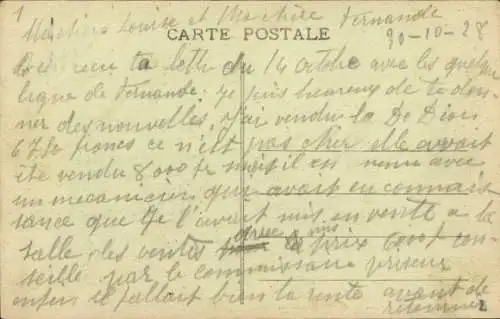 1
Louise et Fernande
CARTE POSTALE
20-10-28
reçu ta lettre du 14 octobre avec les quelque
ligne de Fernande. je suis heureux de te don-
ner des nouvelles, j'ai vendu la De Dion
6750 francs ce n'est pas cher elle avait
été vendu 8000 fr mais il est venu avec
un mecanicien qui avait eu connais
sance que je l'avait mis en vente a la
salle des ventes avec mis a prix con-
seillé par le commissaire priseur
enfin il fallait bien la vente avant de
retourner